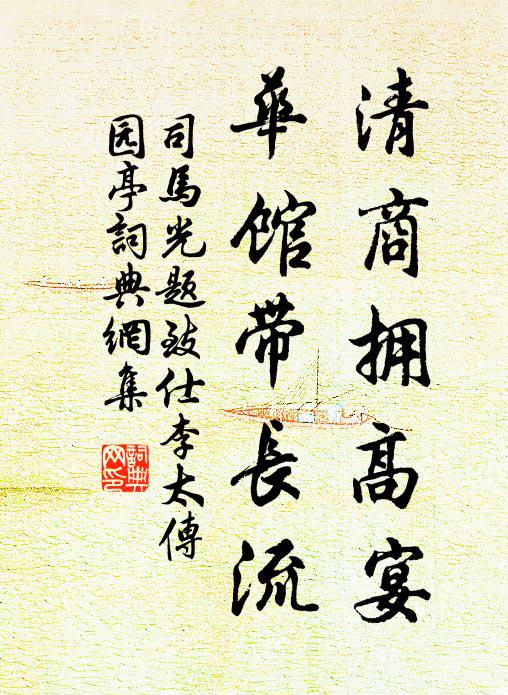 清商拥高宴
華館带長流
司馬光题致仕李太傅
园亭詞典網集
詞典网印